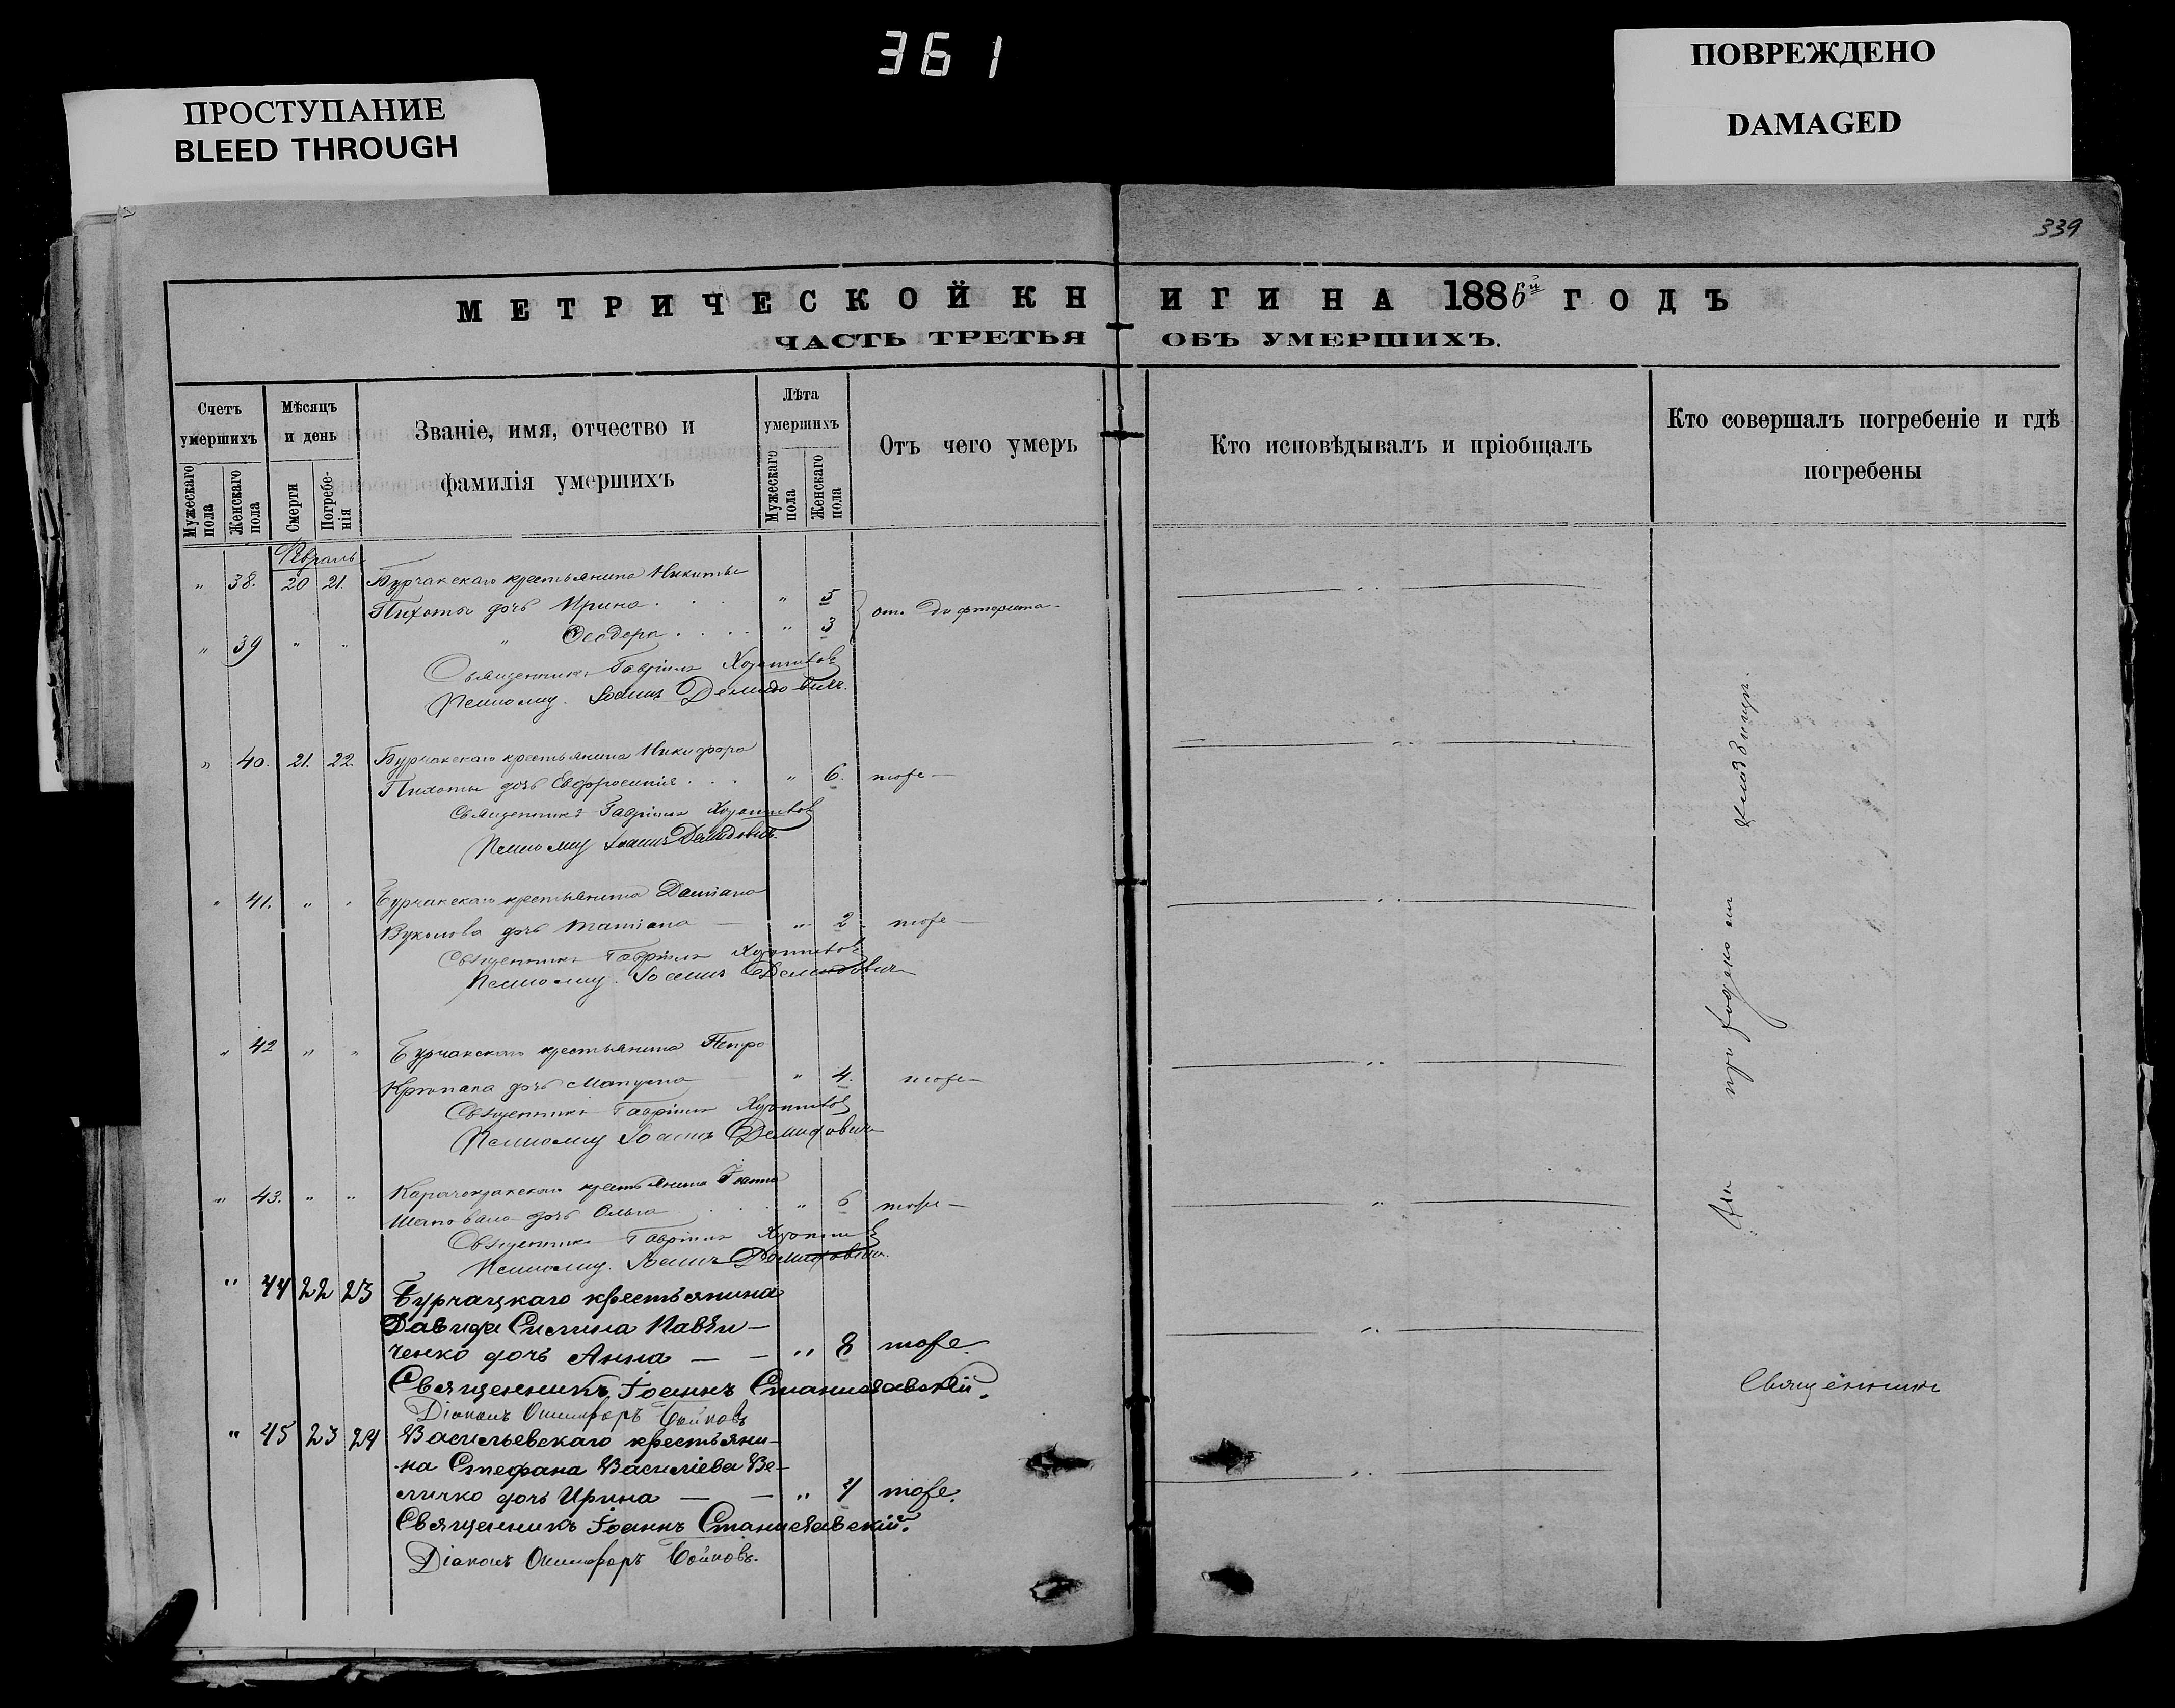 361
ПРОСТУПАНИЕ
BLEED THROUGH
ПОВРЕЖДЕНО
DAMAGED
339
МЕТРИЧЕСКОЙ КНИГИ НА 1886й ГОДЪ
ЧАСТЬ ТРЕТЬЯ ОБЪ УМЕРШИХЪ.
Счетъ умершихъ
Мужескаго пола
Женскаго пола
Мѣсяцъ и день
Смерти
Погребенія
Званіе, имя, отчество и
фамилія умершихъ
Лѣта умершихъ
Мужескаго пола
Женскаго пола
Отъ чего умеръ
Кто исповѣдывалъ и пріобщалъ
Кто совершалъ погребеніе и гдѣ
погребены
Февраль
" 38. 20 21. Бурчакскаго крестьянина Никиты
Пихоты дочь Ирина . . . " 5 от дифтерита
" 39 " " " Ѳеодора . . . . " 3
Священникъ Гавріилъ
Псаломщ. Іоаннъ Демидовичъ.
" 40. 21. 22. Бурчакскаго крестьянина Никифора
Пихоты дочь Евфросинія . . . " 6. тоже —
Священникъ Гавріилъ
Псаломщ Іоаннъ Демидовичъ.
" 41. " " Бурчакскаго крестьянина Даміана
Вуколова дочь Татіана — " 2 тоже —
Священникъ Гавріилъ
Псаломщ. Іоаннъ Демидовичъ
" 42 " " Бурчакскаго крестьянина Петра
дочь " 4. тоже —
Священникъ Гавріилъ
Псаломщ Іоаннъ Демидовичъ
" 43. " " крестьянина Іоанна
Шаповала дочь Ольга . . . " 6 тоже —
Священникъ Гавріилъ
Псаломщ. Іоаннъ Демидовичъ.
" 44 22 23 Бурчацкаго крестьянина
Давида Павли—
ченко дочь Анна — — " 8 тоже.
Священникъ Іоаннъ Станиславскій.
Діаконъ Онисифоръ Бойковъ
" 45 23 24 Васильевскаго крестьяни—
на Стефана Василіева Ве—
личко дочь Ирина — — " 4 тоже.
Священникъ Іоаннъ Станиславскій.
Діаконъ Онисифоръ Бойковъ.
На приходском кладбищѣ.
Священники